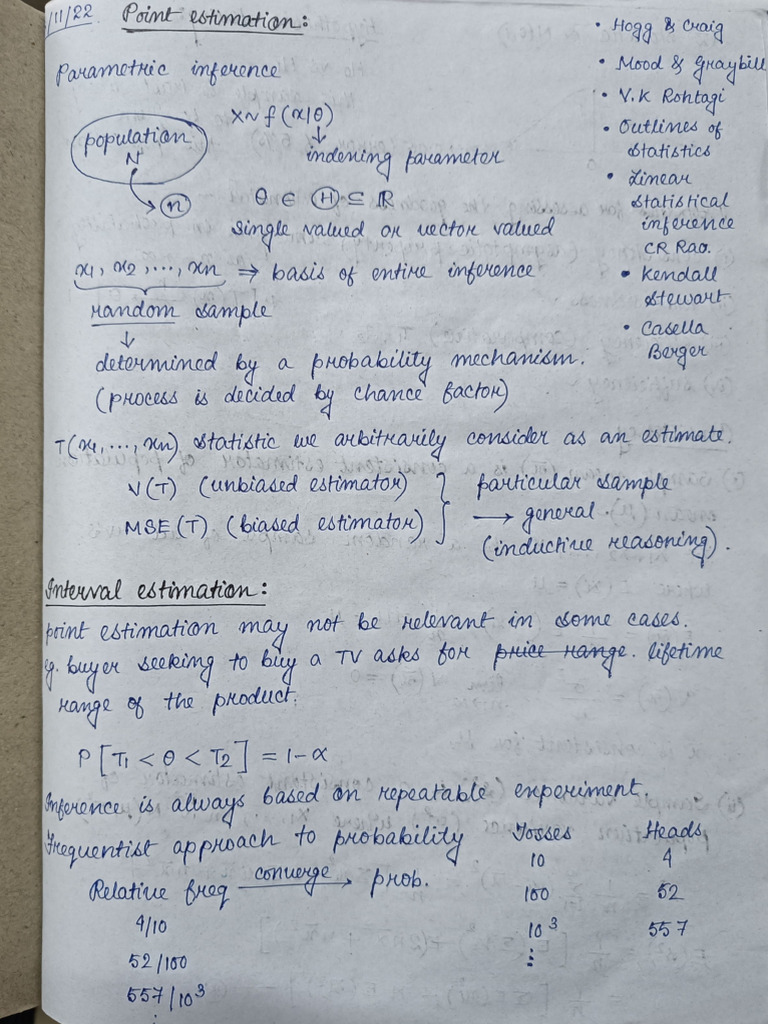 /11/22 Point estimation:
Parametric inference
population
N
n
X~f(x|θ)
↓
indening parameter
θ ∈ Ⓗ ⊆ ℝ
single valued or vector valued
x1, x2, ..., xn ⇒ basis of entire inference
random sample
↓
determined by a probability mechanism.
(process is decided by chance factor)
• Hogg & Craig
• Mood & Graybill
• V.K Rohtagi
• Outlines of
statistics
• Linear
statistical
inference
CR Rao.
• Kendall
Stewart.
• Casella
Berger
T(x1, ..., xn) statistic we arbitrarily consider as an estimate.
V(T) (unbiased estimator) } particular sample
MSE(T) (biased estimator) } → general.
(inductive reasoning).
Interval estimation:
point estimation may not be relevant in some cases.
eg. buyer seeking to buy a TV asks for price range. lifetime
range of the product.
P[T1 < θ < T2] = 1-α
Inference is always based on repeatable experiment.
Frequentist approach to probability
Relative freq converge → prob.
4/10
52/100
557/10³
⋮
Tosses Heads
10 4
100 52
10³ 557
⋮